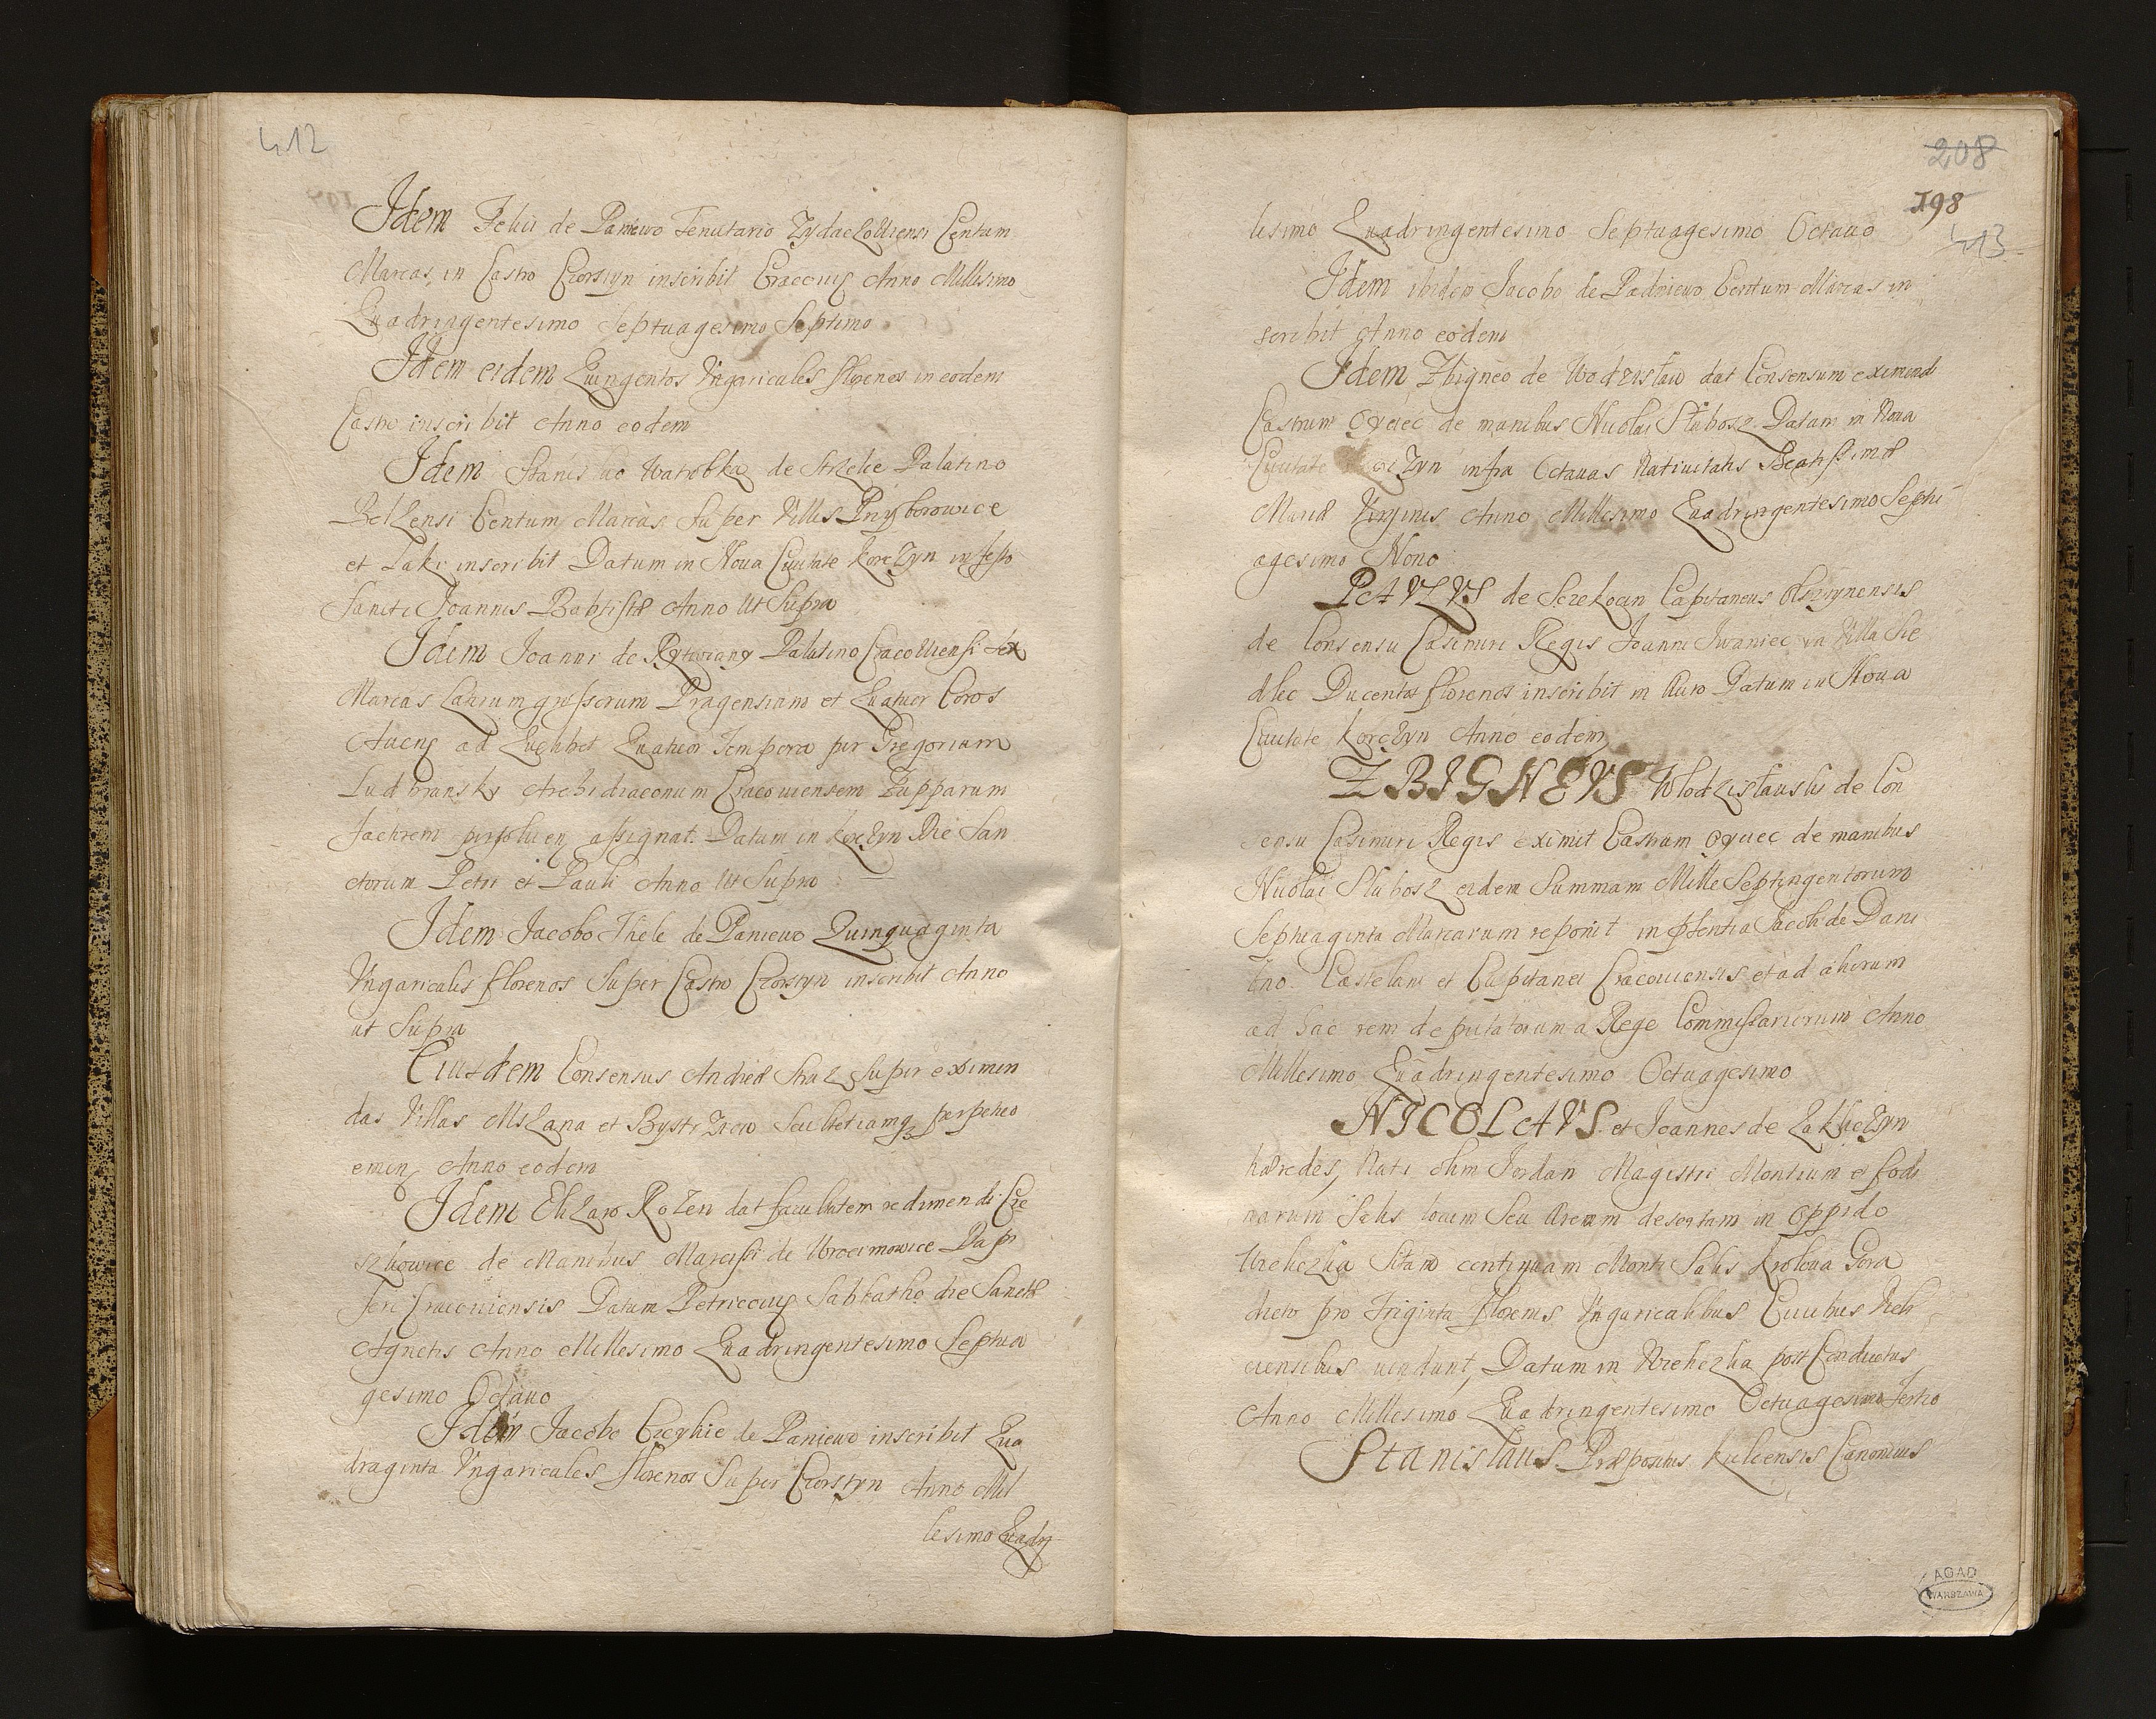 412
Idem Felici de Paniewo Tenutario Zydaczoviensi Centum
Marcas in Castro Czorsztyn inscribit Cracoviæ Anno Millesimo
Quadringentesimo Septuagesimo Septimo
Idem eidem Quingentos Vngaricales florenos in eodem
Castro inscribit Anno eodem
Idem Stanislao Watrobka de Strzelce Palatino
Belzensi Centum Marcas Super Villis Przyborowice
et Laki inscribit Datum in Noua Ciuitate Korczyn in festo
Sancti Joannis Babtistæ Anno Ut Supra
Idem Joanni de Rytwiany Palatino Cracouiensi Sex
Marcas Latorum grossorum Pragensium et Quatuor Coros
Auenę ad Quælibet Quatuor Tempora per Gregorium
Ludbransky Archidiaconum Cracouiensem Zupparum
factorem persoluen assignat. Datum in Korczyn Die San
ctorum Petri et Pauli Anno Ut Supra
Idem Jacobo Thele de Paniewo Quinquaginta
Vngaricales florenos Super Castro Czorstyn inscribit Anno
ut Supra
Eiusdem Consensus Andreæ super eximen
das Villas Mszana et Bystrzicw Scultetiamq perpetuo
emen Anno eodem
Idem Elizaro Rozen dat facultatem redimendi Cie
szkowice de Manibus Marcissi de Wrocimowice Dapi
feri Cracouiensis Datum Petricouiæ Sabbatho die Sanctæ
Agnetis Anno Millesimo Quadringentesimo Septua
gesimo Octauo
Idem Jacobo de Paniewo inscribit Qua
draginta Vngaricales florenos Super Czorstyn Anno Mil
lesimo Quadrῃ
208
198
413
lisimo Quadringentesimo Septuagesimo Octauo
Idem ibidem Jacobo de Padniewo Centum Marcas in
scribit Anno eodem
Idem Zbigneo de Wodzisław dat Consensum eximend
Castrum Oyciec de manibus Nicolai Słubosz Datum in Noua
Ciuitate Korczyn infra Octauas Natiuitatis Beatissimæ
Mariæ Virginis Anno Millesimo Quadringentesimo Septu
agesimo Nono
PAVLVS de Szczekocin Capitaneus Olsztynensis
de Consensu Casimiri Regis Joanni Iwaniec in Villa Sie
dlec Ducentos florenos inscribit in Auro Datum in Noua
Ciuitate Korczyn Anno eodem
ZBIGNEVS Włodzisłauski de Con
sensu Casimiri Regis eximit Castrum Oyciec de manibus
Nicolai Słubosz eidem Summam Mille Septingentorum
Septuaginta Marcarum reponit in pñtia Jacobi de Damb
no Castelani et Capitanei Cracouiensis et ad aliorum
ad hac rem deputatorum a Rege Commissariorum Anno
Millesimo Quadringentesimo Octuagesimo
NICOLAVS et Joannes de Zakliczyn
hæredes, Nati olim Jordan Magistri Montium et fodi
narum Salis locum Seu Aream desertam in Oppido
Wieliczka Sitam contiquam Monti Salis Krolowa Gora
dicto pro Triginta florenis Vngaricalibus Ciuibus Vieli
ciensibus vendunt, Datum in Wieliczka post Conductus
Anno Millesimo Quadringentesimo Octuagesimo Tertio
Stanislaus Præpositus Kielcensis Canonicus
AGAD
WARSZAWA